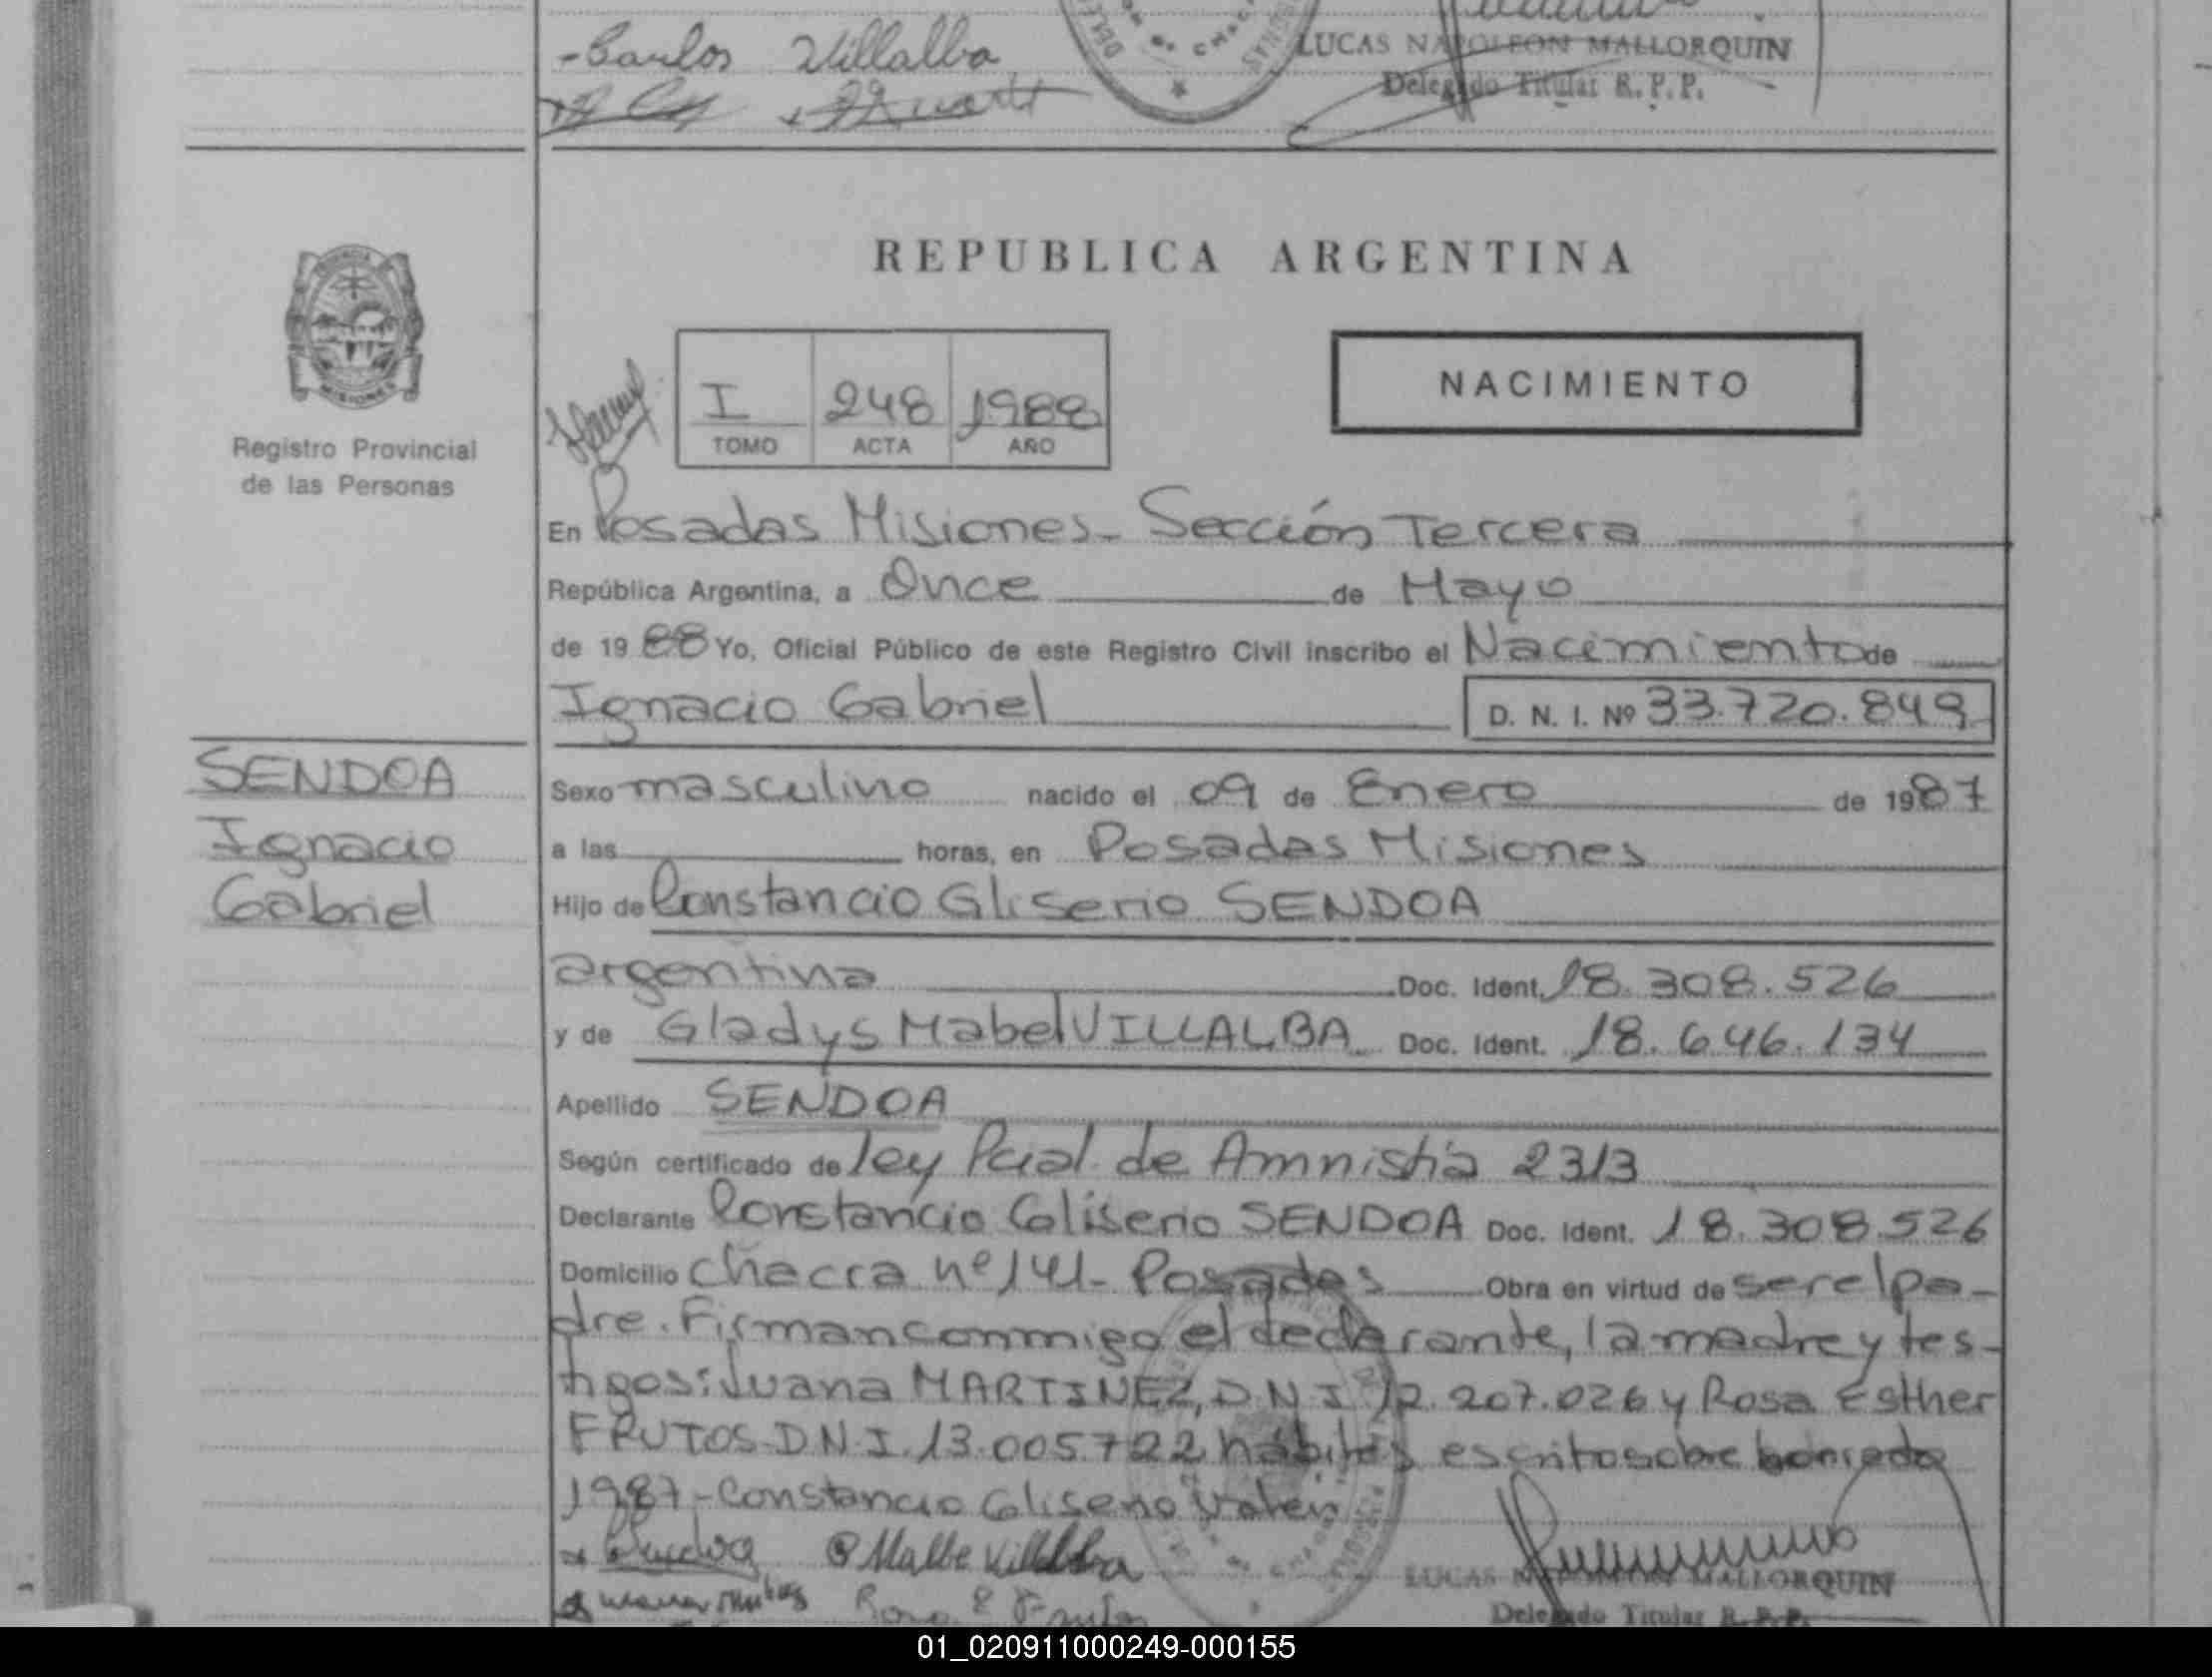 -Carlos Villalba
LUCAS NAPOLEON MALLORQUIN
Delegado Titular R. P. P.
MISIONES
Registro Provincial
de las Personas
REPUBLICA ARGENTINA
NACIMIENTO
I 248 1988
TOMO ACTA AÑO
En Posadas Misiones- Sección Tercera
República Argentina, a Once de Mayo
de 1988 Yo, Oficial Público de este Registro Civil inscribo el Nacimiento de
Ignacio Gabriel D. N. I. Nº 33.720.849
SENDOA
Ignacio
Gabriel
Sexo masculino nacido el 09 de Enero de 1987
a las horas, en Posadas Misiones
Hijo de Constancio Gliserio SENDOA
argentina Doc. Ident. 18.308.526
y de Gladys Mabel VILLALBA Doc. Ident. 18.646.134
Apellido SENDOA
Según certificado de ley Pcial. de Amnistía 2313
Declarante Constancio Gliserio SENDOA Doc. Ident. 18.308.526
Domicilio Chacra nº 141- Posadas Obra en virtud de ser el pa-
dre. Firman conmigo el declarante, la madre y tes-
tigos: Juana MARTINEZ, D.N.I. 12.207.026 y Rosa Esther
FRUTOS-D.N.I. 13.005.722 hábiles escrito sobre borrado
1987-Constancio Gliserio Valen
LUCAS NAPOLEON MALLORQUIN
Delegado Titular R. P. P.
01_020911000249-000155